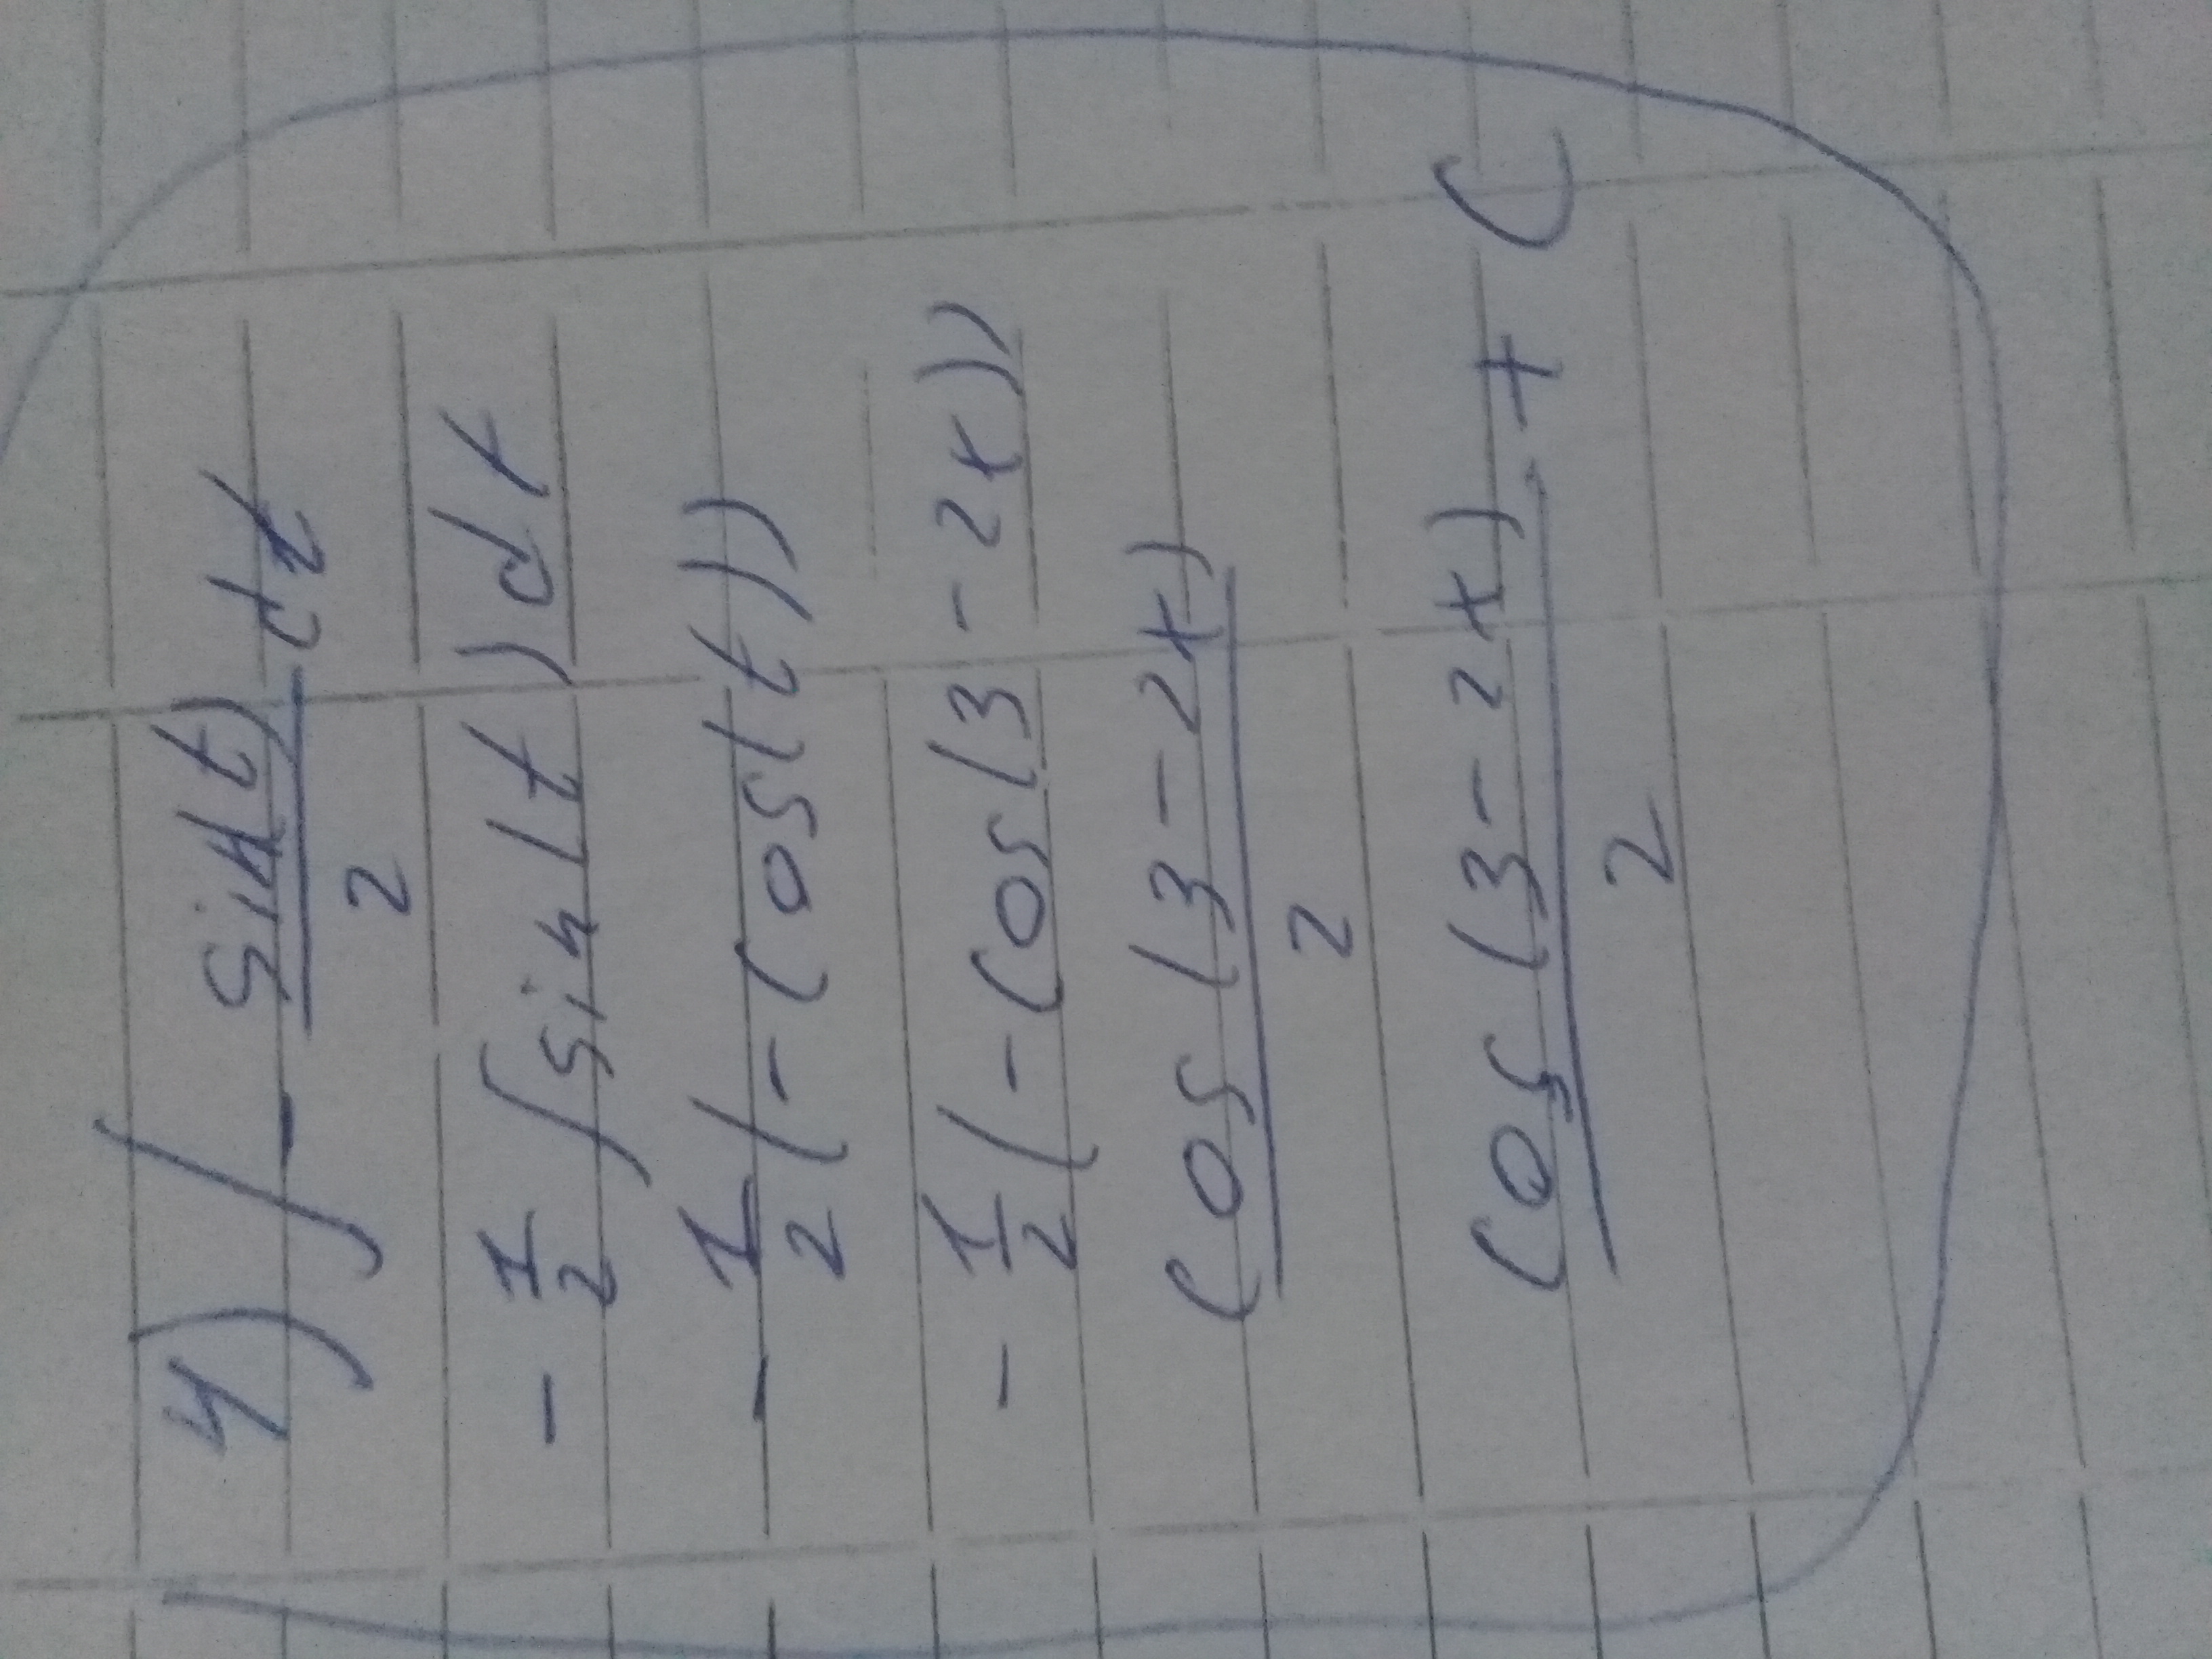 4) ∫ - sin(t)/2 dt
- 1/2 ∫ sin(t) dt
- 1/2 (- cos(t))
- 1/2 (- cos(3 - 2x))
cos(3 - 2x)/2
cos(3 - 2x)/2 + C